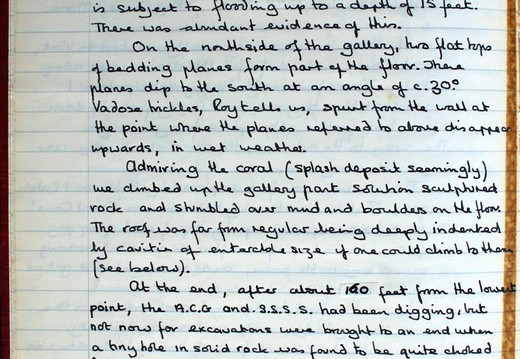 is subject to flooding up to a depth of 15 feet.
There was abundant evidence of this.
On the northside of the gallery, two flat tops
of bedding planes form part of the floor. These
planes dip to the south at an angle of c.30°
Vadose trickles, Roy tells us, spurt from the wall at
the point where the planes referred to above disappear
upwards, in wet weather.
Admiring the coral (splash deposit seemingly)
we climbed up the gallery past solution sculptured
rock and stumbled over mud and boulders on the floor.
The roof was far from regular being deeply indented
by cavities of enterable size if one could climb to them
(see below).
At the end, after about 160 feet from the lowest
point, the A.C.G and S.S.S.S. had been digging, but
not now for excavations were brought to an end when
a tiny hole in solid rock was found to be quite choked